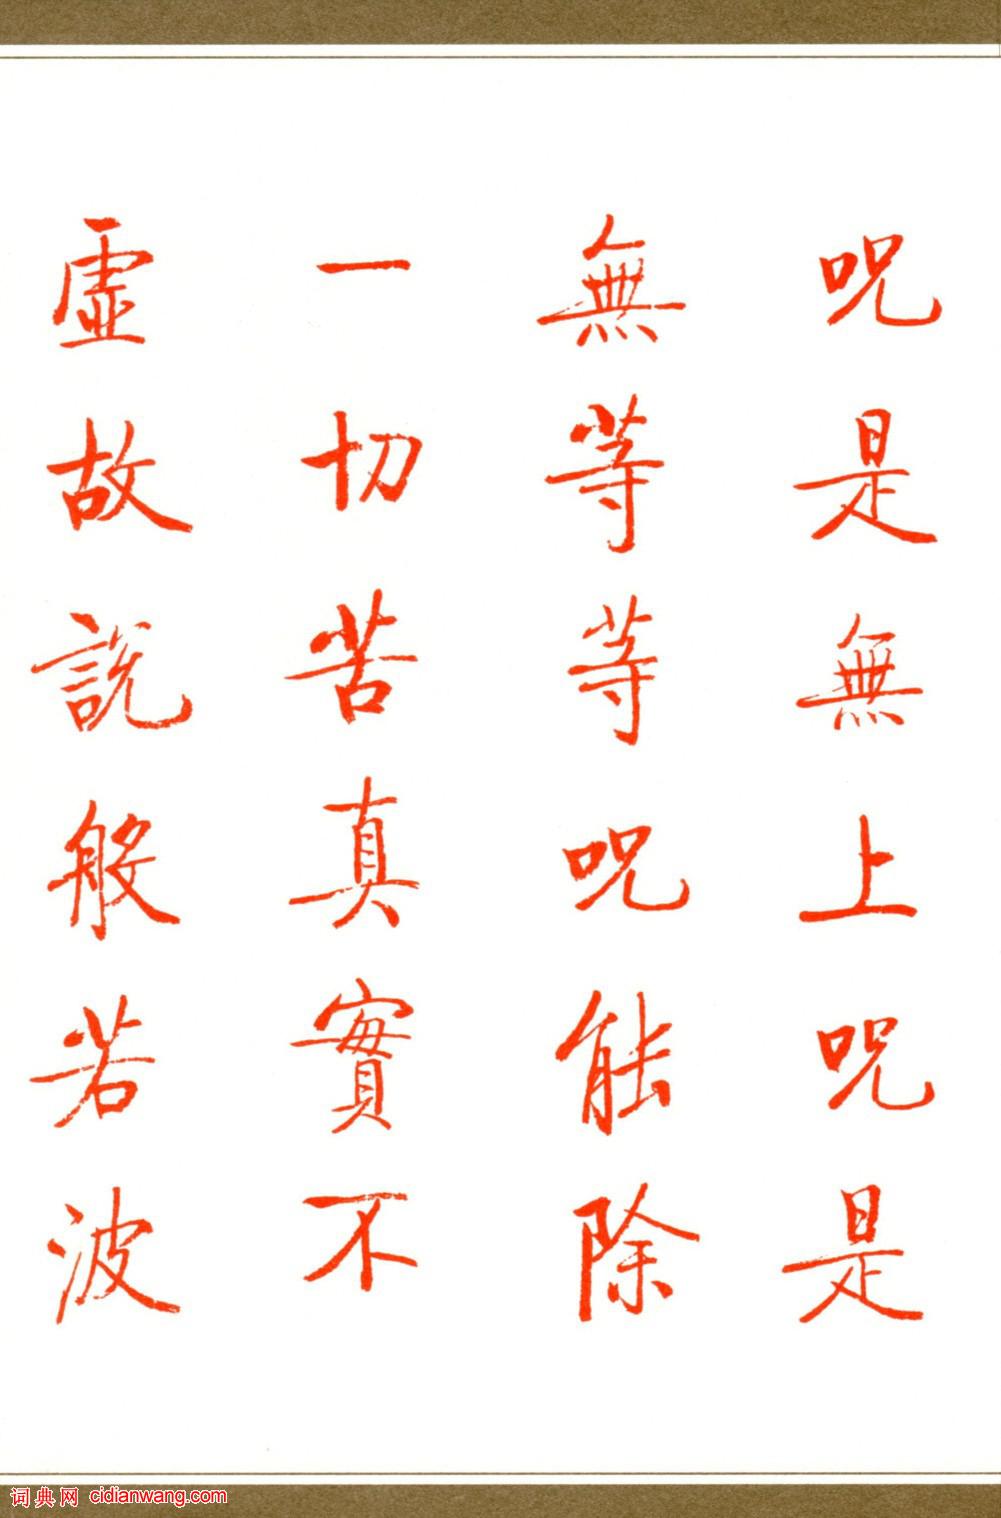 呪是無上呪是
無等等呪能除
一切苦真實不
虛故說般若波
词典网 cidianwang.com